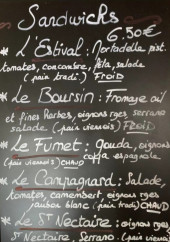 Sandwichs
6.50€
* L'Estival : Mortadella pist.
tomates, concombre, féta, salade
(pain tradi.) FROID
* Le Boursin : Fromage ail
et fines herbes, oignons rges serrano
salade (pain viennois) FROID
* Le Fumet : Gouda, oignons
(pain viennois) CHAUD coppa espagnole
* Le Campagnard : Salade,
tomates, camembert oignons rges
jambon blanc (pain tradi) CHAUD
* Le St Nectaire : oignons rges
St Nectaire, Serrano (pain viennois)